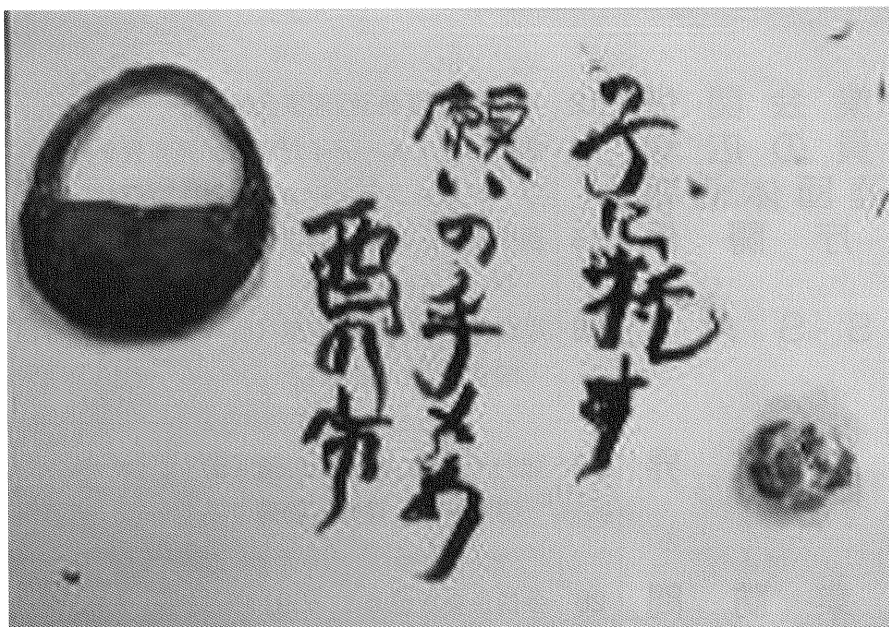 子に托す
願いの手〆や
酉の市